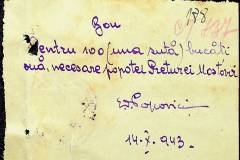 188
Bon
Pentru 100 (una sută) bucăți
ouă, necesare popotei Preturei Mostovoi
Popovici
14.X.943.